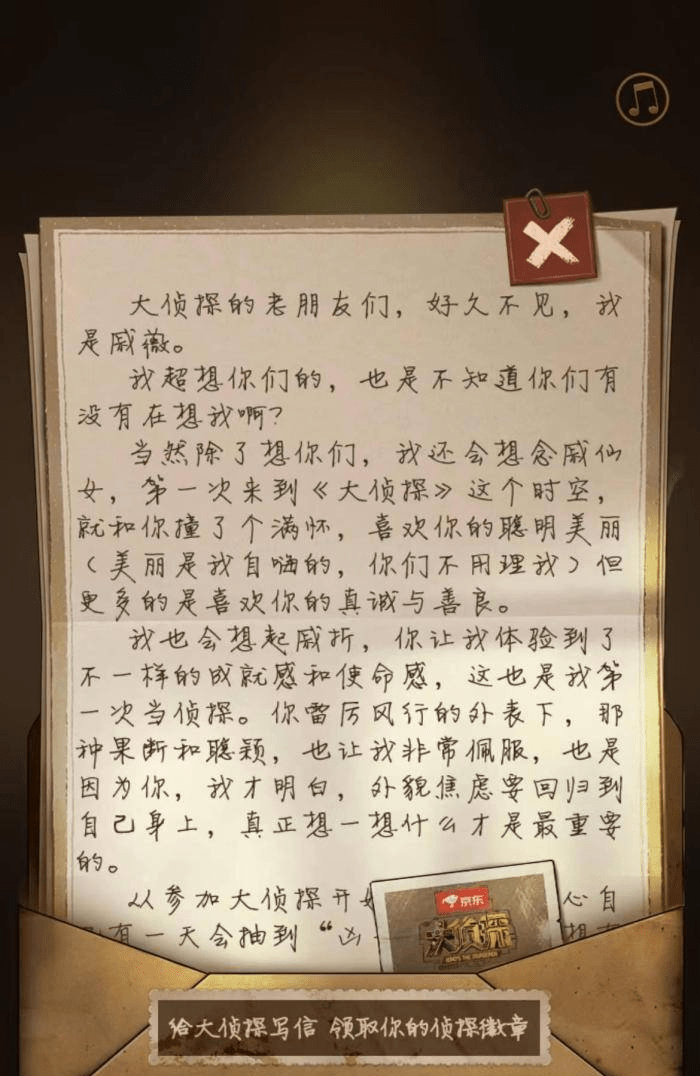 大侦探的老朋友们，好久不见，我
是戚薇。
我超想你们的，也是不知道你们有
没有在想我啊？
当然除了想你们，我还会想念戚仙
女，第一次来到《大侦探》这个时空，
就和你撞了个满怀，喜欢你的聪明美丽
（美丽是我自嗨的，你们不用理我）但
更多的是喜欢你的真诚与善良。
我也会想起戚折，你让我体验到了
不一样的成就感和使命感，这也是我第
一次当侦探。你雷厉风行的外表下，那
种果断和聪颖，也让我非常佩服，也是
因为你，我才明白，外貌焦虑要回归到
自己身上，真正想一想什么才是最重要
的。
从参加大侦探开 心自
有一天会抽到“凶
京东
大侦探
给大侦探写信 领取你的侦探徽章